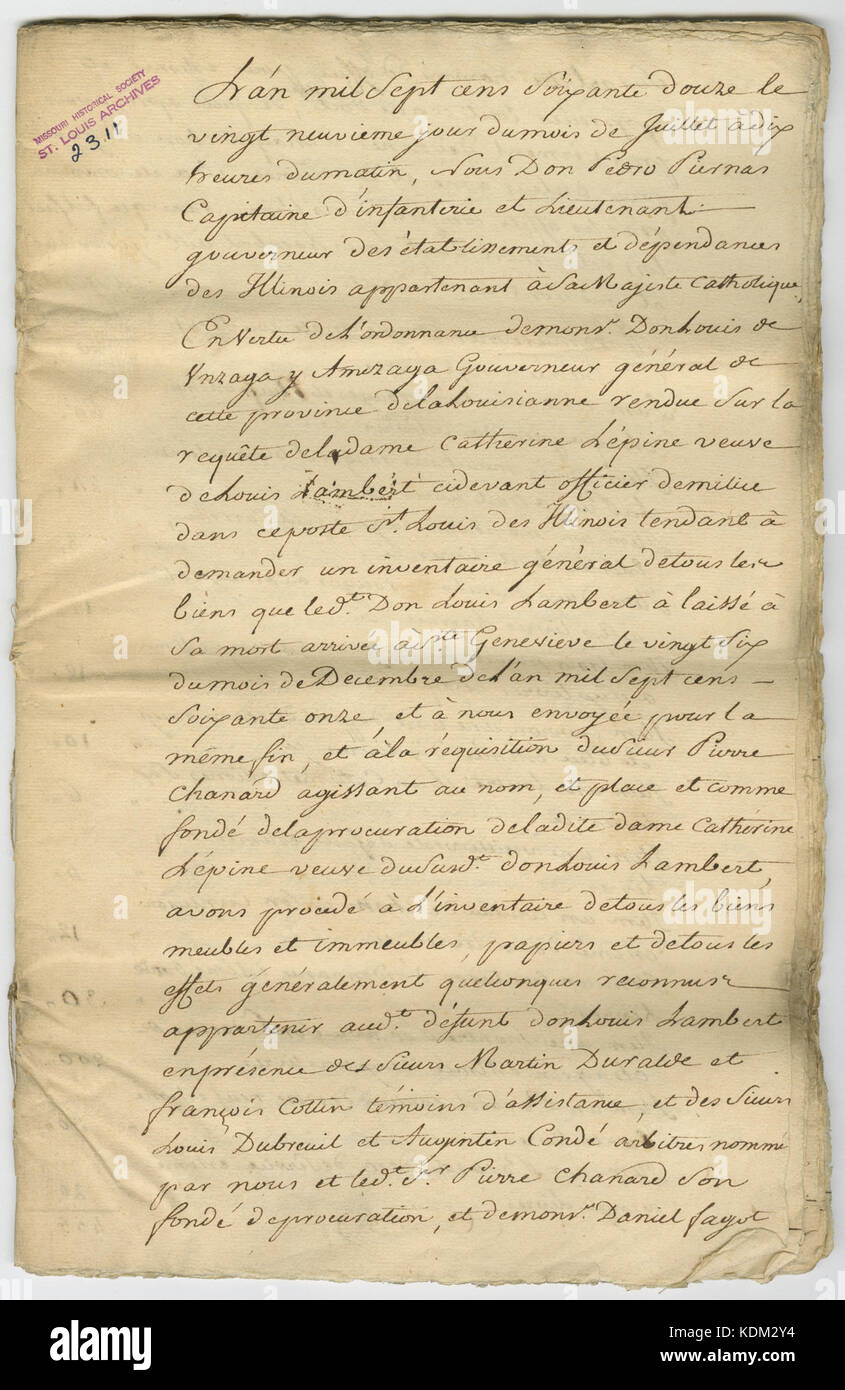 MISSOURI HISTORICAL SOCIETY
ST. LOUIS ARCHIVES
2311
L'an mil Sept cens Soixante douze le
vingt neuvieme jour du mois de Juillet à dix
heures du matin, Nous Don Pedro Piernas
Capitaine d'infanterie et Lieutenant
gouverneur des établissements et dépendances
des Illinois appartenant à Sa Majeste Catholique,
En Vertu de L'ordonnance de monsr. Don Louis de
Unzaga y Amezaga Gouverneur général de
cette province de la Louisianne rendue Sur la
requête de la dame Catherine Lépine veuve
de Louis Lambert cidevant officier de milice
dans ce poste St. Louis des Illinois tendant à
demander un inventaire général de tous les
biens que led.t Don Louis Lambert à laissé à
Sa mort arrivée à Ste Genevieve le vingt Six
du mois de Decembre de L'an mil Sept cens
Soixante onze, et à nous envoyée pour la
même fin, et à la réquisition du Sieur Pierre
Chanard agissant au nom, et place et comme
fondé de la procuration de la dite dame Catherine
Lépine veuve du Susd.t don Louis Lambert,
avons procédé à L'inventaire de tous les biens
meubles et immeubles, papiers et de tous les
effets généralement quelconques reconnus
appartenir aud.t défunt don Louis Lambert
en présence des Sieurs Martin Duralde et
françois Cottin témoins d'assistance, et des Sieurs
Louis Dubreuil et Augustin Condé arbitres nommé
par nous et led.t Sr Pierre Chanard Son
fondé de procuration, et de monsr. Daniel fagot
alamy
alamy
Image ID: KDM2Y4
www.alamy.com